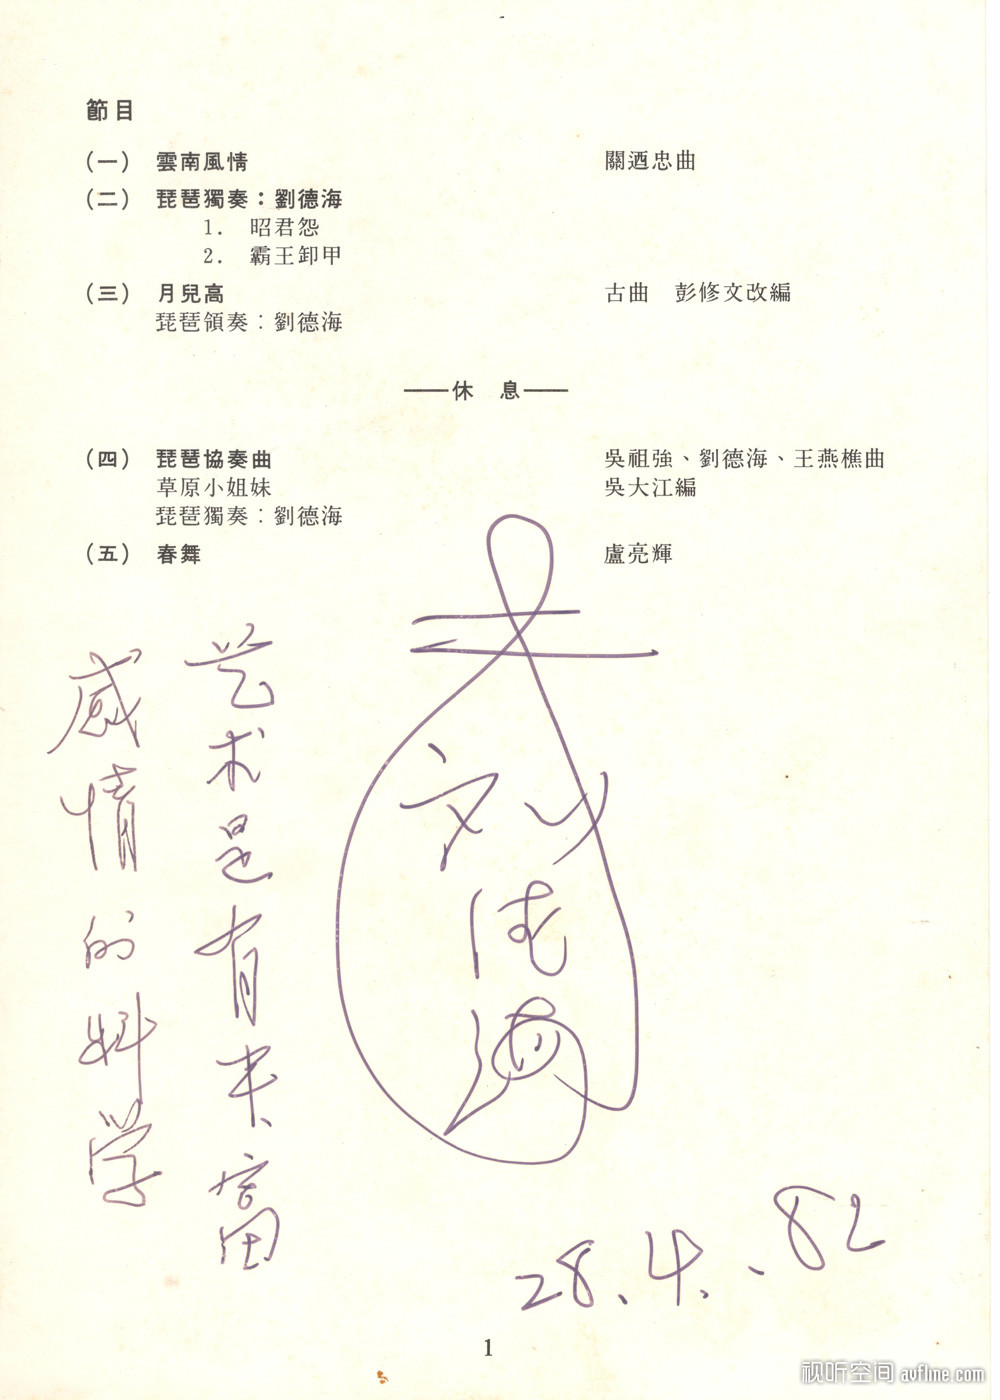 節目
(一) 雲南風情 關迺忠曲
(二) 琵琶獨奏：劉德海
1. 昭君怨
2. 霸王卸甲
(三) 月兒高 古曲 彭修文改編
琵琶領奏：劉德海
——休 息——
(四) 琵琶協奏曲 吳祖強、劉德海、王燕樵曲
草原小姐妹 吳大江編
琵琶獨奏：劉德海
(五) 春舞 盧亮輝
刘德海
艺术是有丰富
感情的科学
28.4.82
1
视听空间 avfline.com